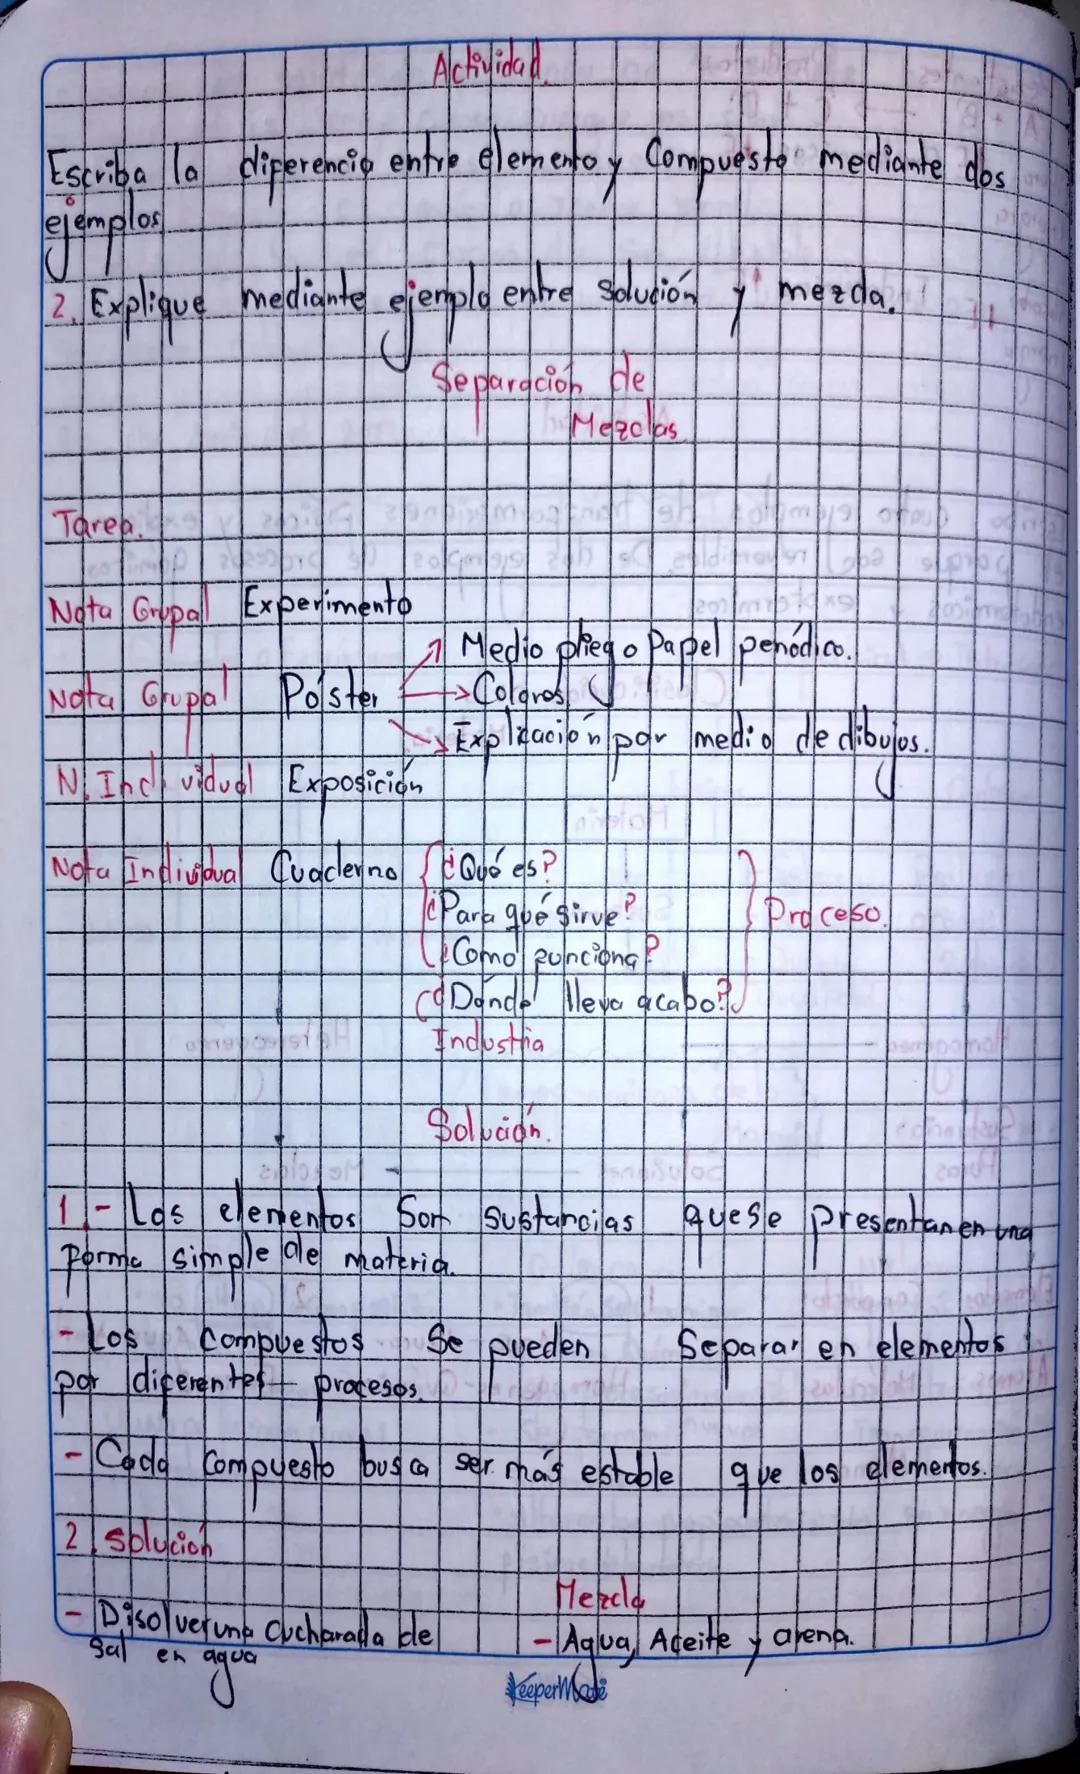 Actividad.
Escriba la diferencia entre elemento y Compuesto mediante dos
ejemplos.
2. Explique mediante ejemplo entre solución y mezcla.
Separación de
Mezclas
Tarea.
Nota Grupal Experimento
Medio pliego Papel periódico.
Nota Grupal Póster Colores
Explicación por medio de dibujos.
N. Individual Exposición
Nota Individual Cuaderno ¿Qué es?
¿Para qué sirve? Proceso.
¿Como funciona?
¿Dónde lleva acabo?
Industria
Solución.
1.- Los elementos Son sustancias que se presentan en una
forma simple de materia.
- Los compuestos Se pueden Separar en elementos
por diferentes procesos.
- Cada Compuesto busca ser más estable que los elementos.
2. solución
Mezcla
- Disolver una cucharada de - Agua, Aceite y arena.
Sal en agua
KeeperMate